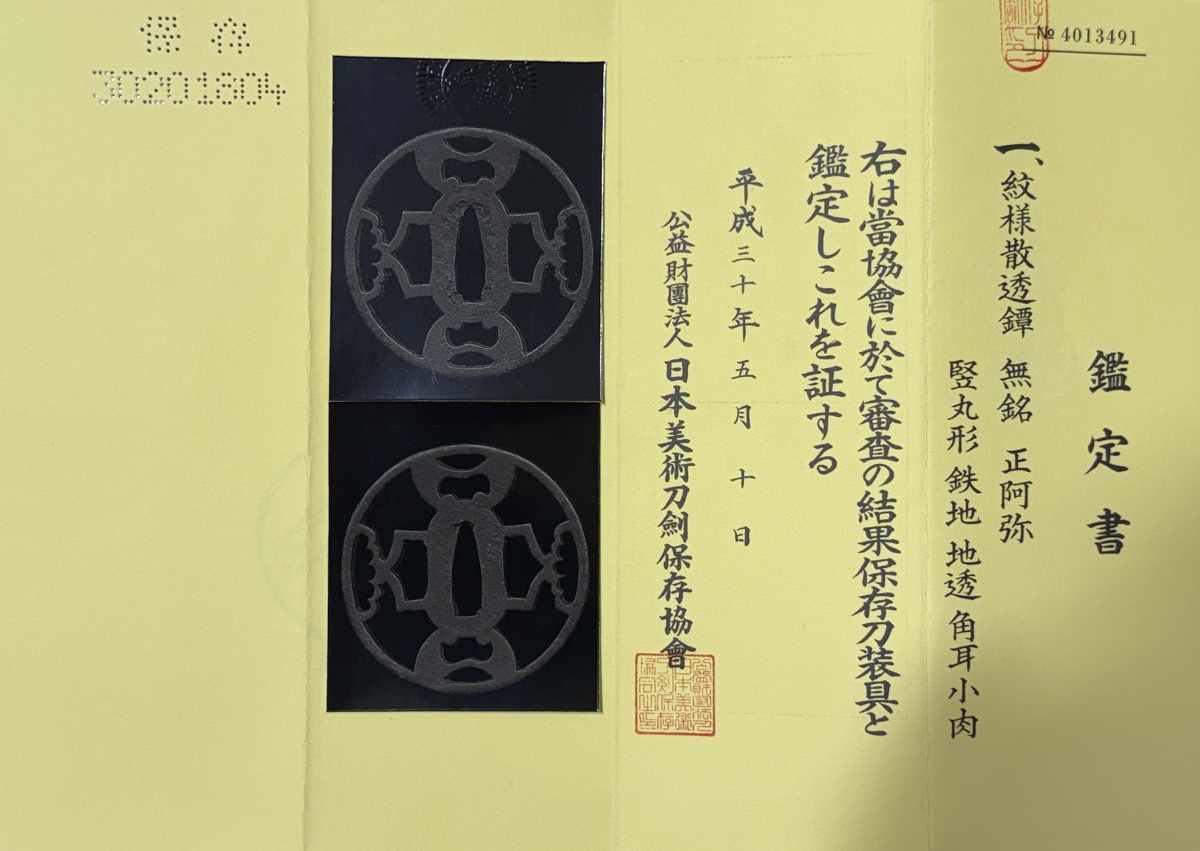 № 4013491
鑑定書
一、紋様散透鐔 無銘 正阿弥
竪丸形 鉄地 地透 角耳小肉
右は當協會に於て審査の結果保存刀装具と
鑑定しこれを証する
平成三十年五月十日
公益財團法人 日本美術刀劍保存協會
保存
30201804